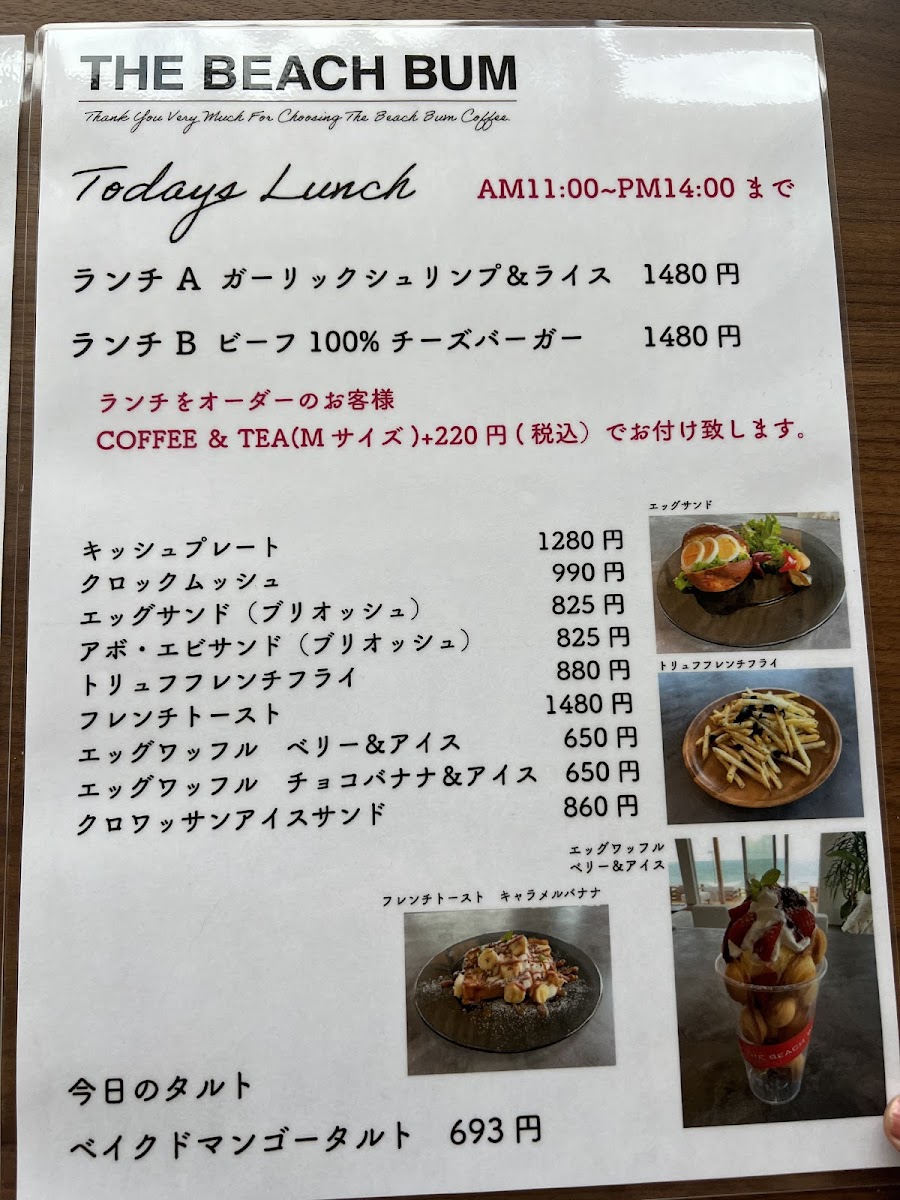 THE BEACH BUM
Thank You Very Much For Choosing The Beach Bum Coffee.
Todays Lunch
AM11:00~PM14:00 まで
ランチ A ガーリックシュリンプ&ライス 1480 円
ランチ B ビーフ 100% チーズバーガー 1480 円
ランチをオーダーのお客様
COFFEE & TEA(M サイズ)+220 円(税込）でお付け致します。
エッグサンド
キッシュプレート 1280 円
クロックムッシュ 990 円
エッグサンド（ブリオッシュ） 825 円
アボ・エビサンド（ブリオッシュ） 825 円
トリュフフレンチフライ 880 円
フレンチトースト 1480 円
エッグワッフル　ベリー&アイス 650 円
エッグワッフル　チョコバナナ&アイス 650 円
クロワッサンアイスサンド 860 円
トリュフフレンチフライ
エッグワッフル
ベリー&アイス
フレンチトースト　キャラメルバナナ
THE BEACH
今日のタルト
ベイクドマンゴータルト 693 円